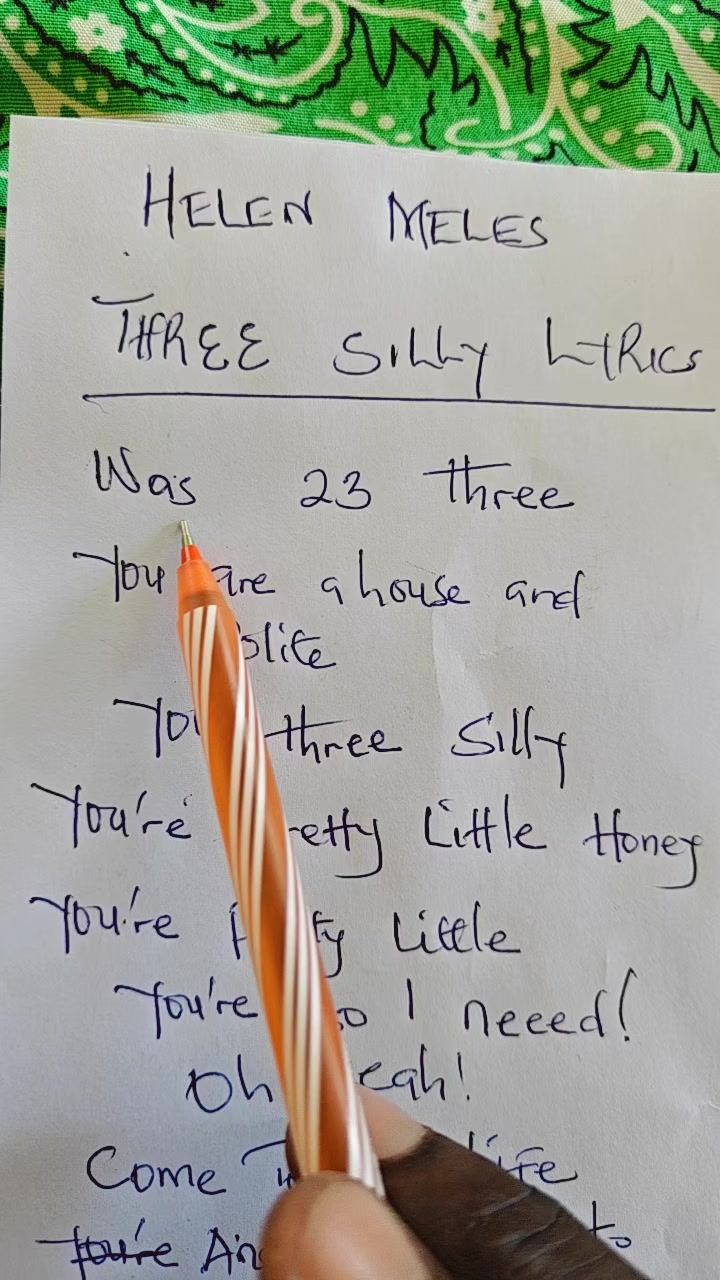 HELEN MELES
THREE SILLY LYRICS
Was 23 three
You are a house and
You three silly
You're Little Honey
You're Little
You're I neeed!
Oh
Come
You're
to